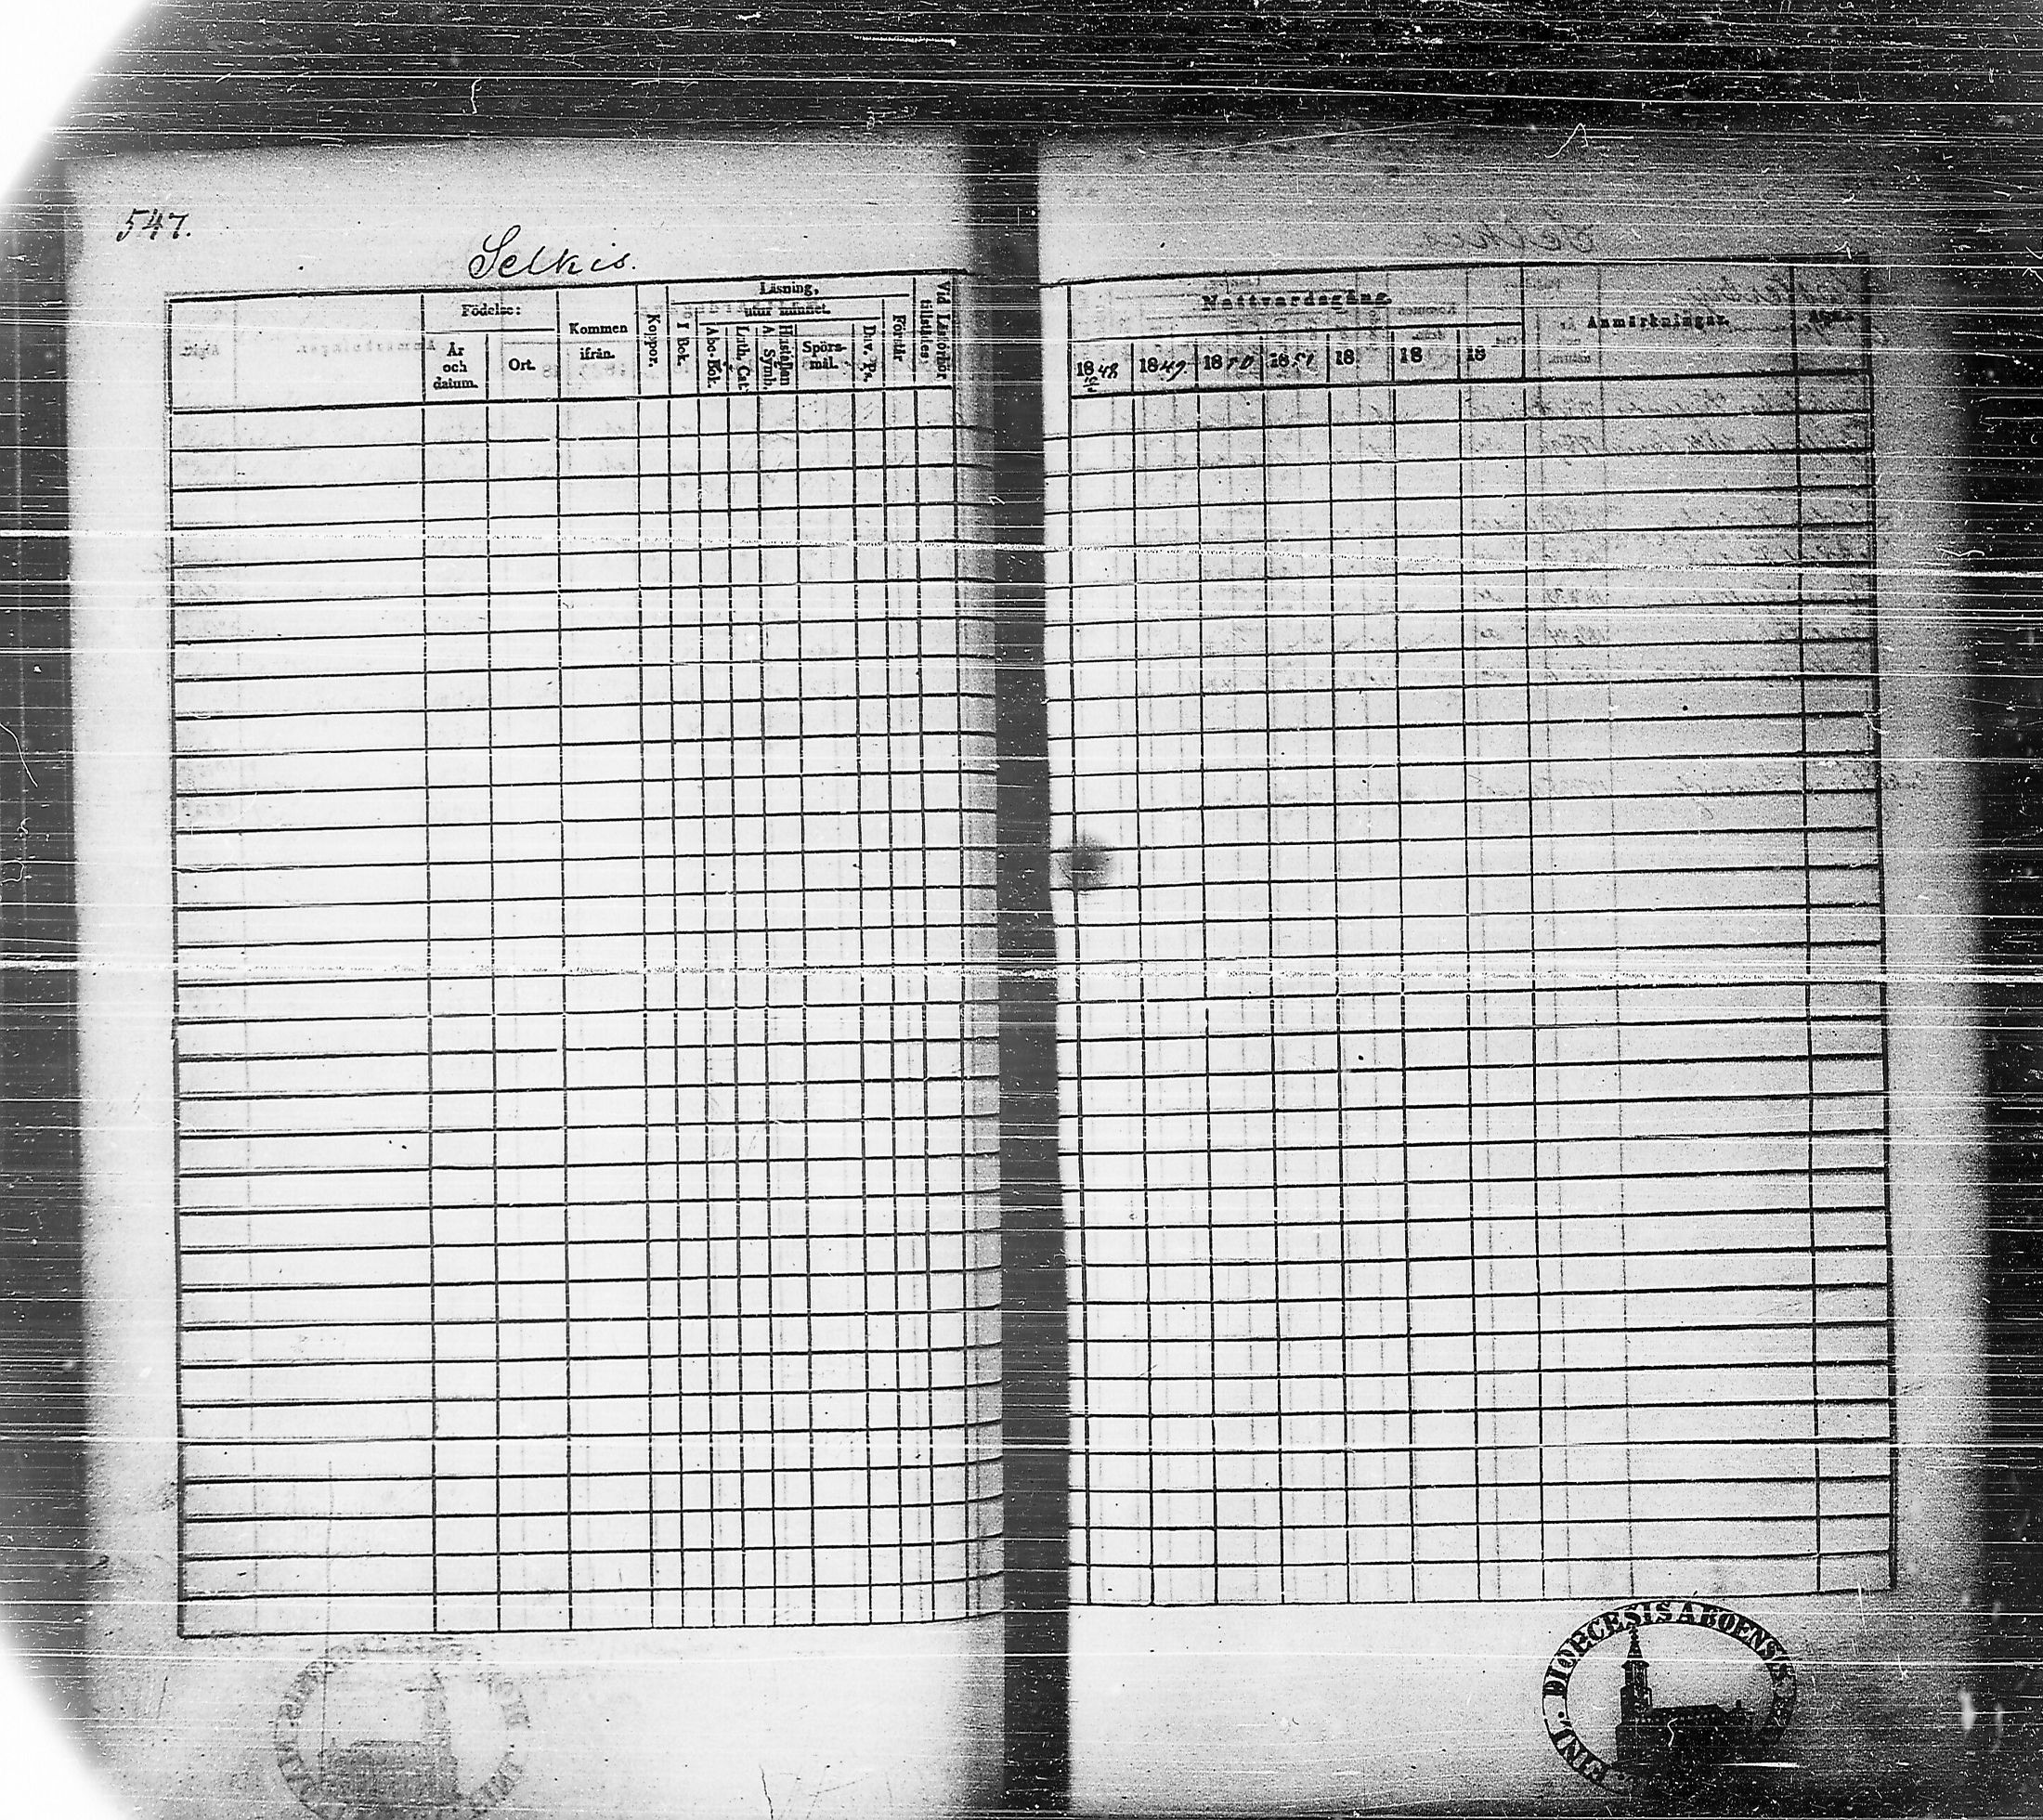 547.
Selkis.
Födelse:
År
och
datum.
Ort.
Kommen
ifrån.
Koppor.
Läsning,
utur minnet.
I Bok.
Abc-Bok.
Luth. Cat.
Hustaflan
A. Symb.
Spörs-
mål.
Dav. Ps.
Förstår.
Vid Läsförhör
tillstädes.
Nattvardsgång.
1848
1849
1850
1851
18
18
18
Anmärkningar.
DIOECESIS ABOENSIS
FINL.